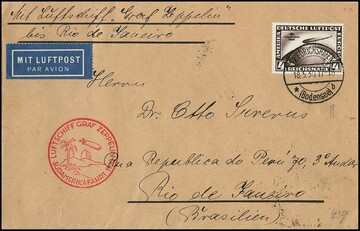 Mit Luftschiff "Graf Zeppelin"
bis Rio de Janeiro
MIT LUFTPOST
PAR AVION
DEUTSCHE LUFTPOST
REICHSMARK
FRIEDRICHSHAFEN
(Bodensee)
Herrn
Dr. Otto Sirerus
LUFTSCHIFF GRAF ZEPPELIN
SÜDAMERIKAFAHRT
Rua Republica do Perú 70, 3º Andar
Rio de Janeiro
(Brasilien)